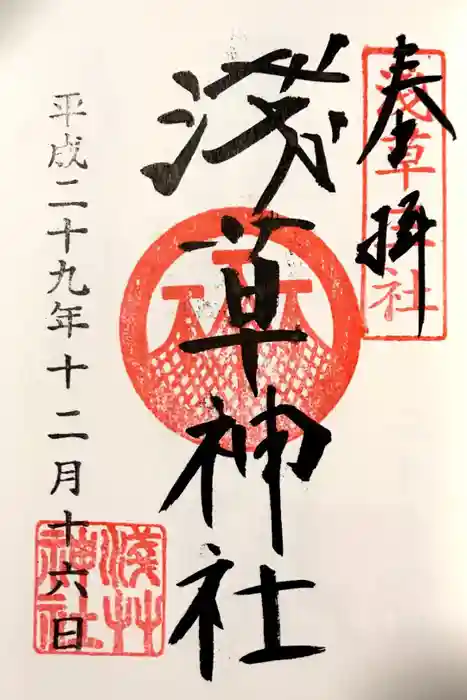 奉拝
浅草神社
淺草神社
平成二十九年十二月十六日
淺草神社